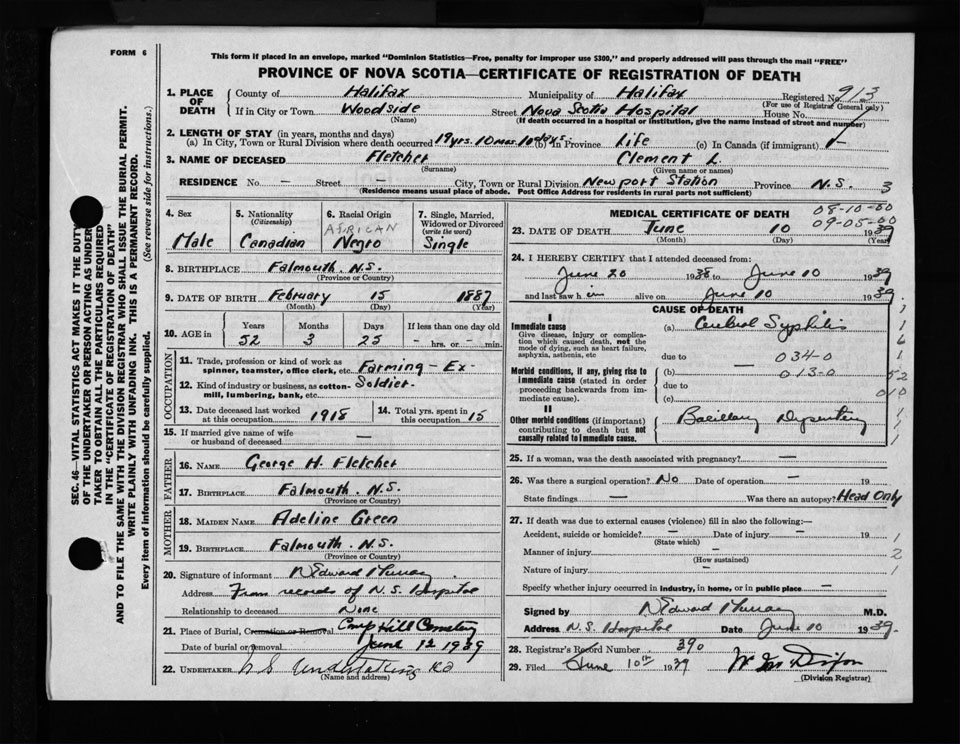 FORM 6
This form if placed in an envelope, marked "Dominion Statistics—Free, penalty for improper use $300," and properly addressed will pass through the mail "FREE"
PROVINCE OF NOVA SCOTIA—CERTIFICATE OF REGISTRATION OF DEATH
1. PLACE OF DEATH
County of Halifax Municipality of Halifax Registered No. 913
(For use of Registrar General only)
If in City or Town Woodside Street Nova Scotia Hospital House No.
(Name) (If death occurred in a hospital or institution, give the name instead of street and number)
2. LENGTH OF STAY (in years, months and days)
(a) In City, Town or Rural Division where death occurred 19yrs. 10mos. 10days. (b) In Province Life (c) In Canada (if immigrant) —
3. NAME OF DECEASED Fletcher Clement L.
(Surname) (Given name or names)
RESIDENCE No. — Street — City, Town or Rural Division Newport Station Province N.S. 3
(Residence means usual place of abode. Post Office Address for residents in rural parts not sufficient)
SEC. 46—VITAL STATISTICS ACT MAKES IT THE DUTY
OF THE UNDERTAKER OR PERSON ACTING AS UNDER
TAKER TO OBTAIN ALL THE PARTICULARS REQUIRED
IN THE "CERTIFICATE OF REGISTRATION OF DEATH"
AND TO FILE THE SAME WITH THE DIVISION REGISTRAR WHO SHALL ISSUE THE BURIAL PERMIT.
WRITE PLAINLY WITH UNFADING INK. THIS IS A PERMANENT RECORD.
Every item of information should be carefully supplied. (See reverse side for instructions.)
4. Sex Male
5. Nationality (Citizenship) Canadian
6. Racial Origin AFRICAN Negro
7. Single, Married, Widowed or Divorced (write the word) Single
8. BIRTHPLACE Falmouth. N.S.
(Province or Country)
9. DATE OF BIRTH February 15 1887
(Month) (Day) (Year)
10. AGE in Years Months Days If less than one day old
52 3 25 - hrs. or - min.
OCCUPATION
11. Trade, profession or kind of work as spinner, teamster, office clerk, etc. Farming - Ex-
12. Kind of industry or business, as cotton-mill, lumbering, bank, etc. Soldier.
13. Date deceased last worked at this occupation 1918
14. Total yrs. spent in this occupation 15
15. If married give name of wife or husband of deceased —
FATHER
16. NAME George H. Fletcher
17. BIRTHPLACE Falmouth. N.S.
(Province or Country)
MOTHER
18. MAIDEN NAME Adeline Green
19. BIRTHPLACE Falmouth. N.S.
(Province or Country)
20. Signature of informant N Edward Murray
Address From records of N.S. Hospital
Relationship to deceased None
21. Place of Burial, Cremation or Removal Camp Hill Cemetery
Date of burial or removal June 12 1939
22. UNDERTAKER N S Undertaking Co
(Name and address)
MEDICAL CERTIFICATE OF DEATH
08-10-00
09-05-00
23. DATE OF DEATH June 10 1939
(Month) (Day) (Year)
24. I HEREBY CERTIFY that I attended deceased from:
June 20 1938 to June 10 1939
and last saw him alive on June 10 1939.
CAUSE OF DEATH
I
Immediate cause
Give disease, injury or complication which caused death, not the mode of dying, such as heart failure, asphyxia, asthenia, etc
(a) Cerebral Syphilis
due to 034-0
Morbid conditions, if any, giving rise to immediate cause (stated in order proceeding backwards from immediate cause).
(b) — 013-0
due to
(c)
II
Other morbid conditions (if important) contributing to death but not causally related to immediate cause.
Bacillary Dysentery
25. If a woman, was the death associated with pregnancy? —
26. Was there a surgical operation? No Date of operation —
State findings — Was there an autopsy? Head Only
27. If death was due to external causes (violence) fill in also the following:—
Accident, suicide or homicide? — Date of injury — 19 1
(State which)
Manner of injury — 2
(How sustained)
Nature of injury — 1
Specify whether injury occurred in industry, in home, or in public place —
Signed by N Edward Murray M.D.
Address N.S. Hospital Date June 10 1939.
28. Registrar's Record Number 390
29. Filed June 10th 1939
(Division Registrar)